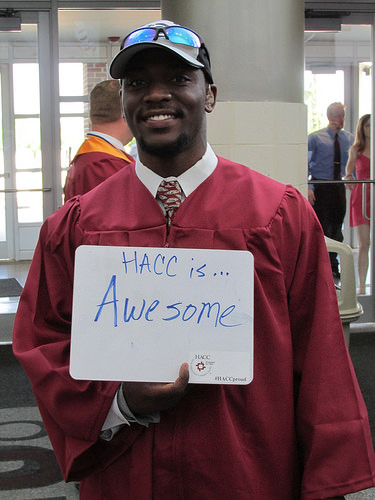 HACC is...
Awesome
HACC
#HACCproud